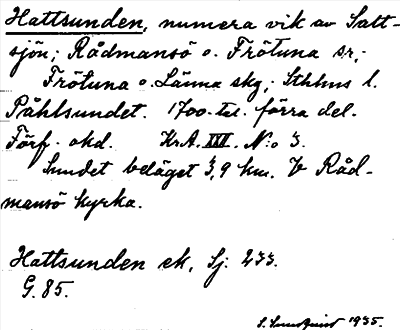 Hattsunden, numera vik av Salt-
sjön; Rådmansö o. Frötuna sr,
Frötuna o. Länna skg, Sthlms l.
Påhlsundet. 1700-tal. förra del.
Förf. okd. Kr.A. XVI. N:o 3.
Sundet beläget 3,9 km. V Råd-
mansö kyrka.
Hattsunden ek, Sj. 233.
G. 85.
1935.